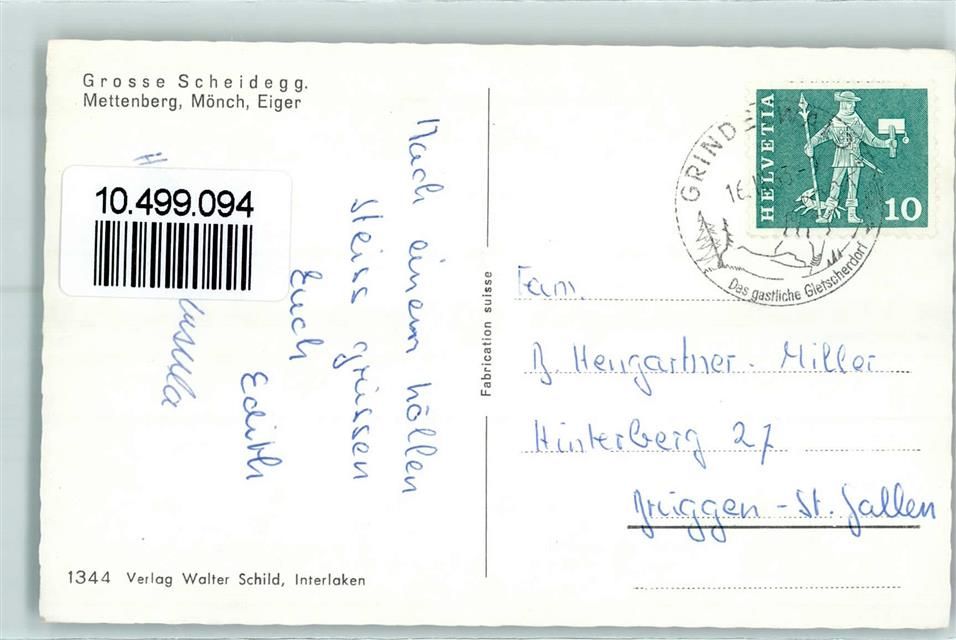 Grosse Scheidegg.
Mettenberg, Mönch, Eiger
10.499.094
Nach einem höllen
steiss grüssen
Euch
Edith
Ursula
1344 Verlag Walter Schild, Interlaken
Fabrication suisse
GRINDELWALD
Das gastliche Gletscherdorf
HELVETIA
10
Fam.
B. Hengartner-Miller
Hinterberg 27
Brüggen-St. Gallen